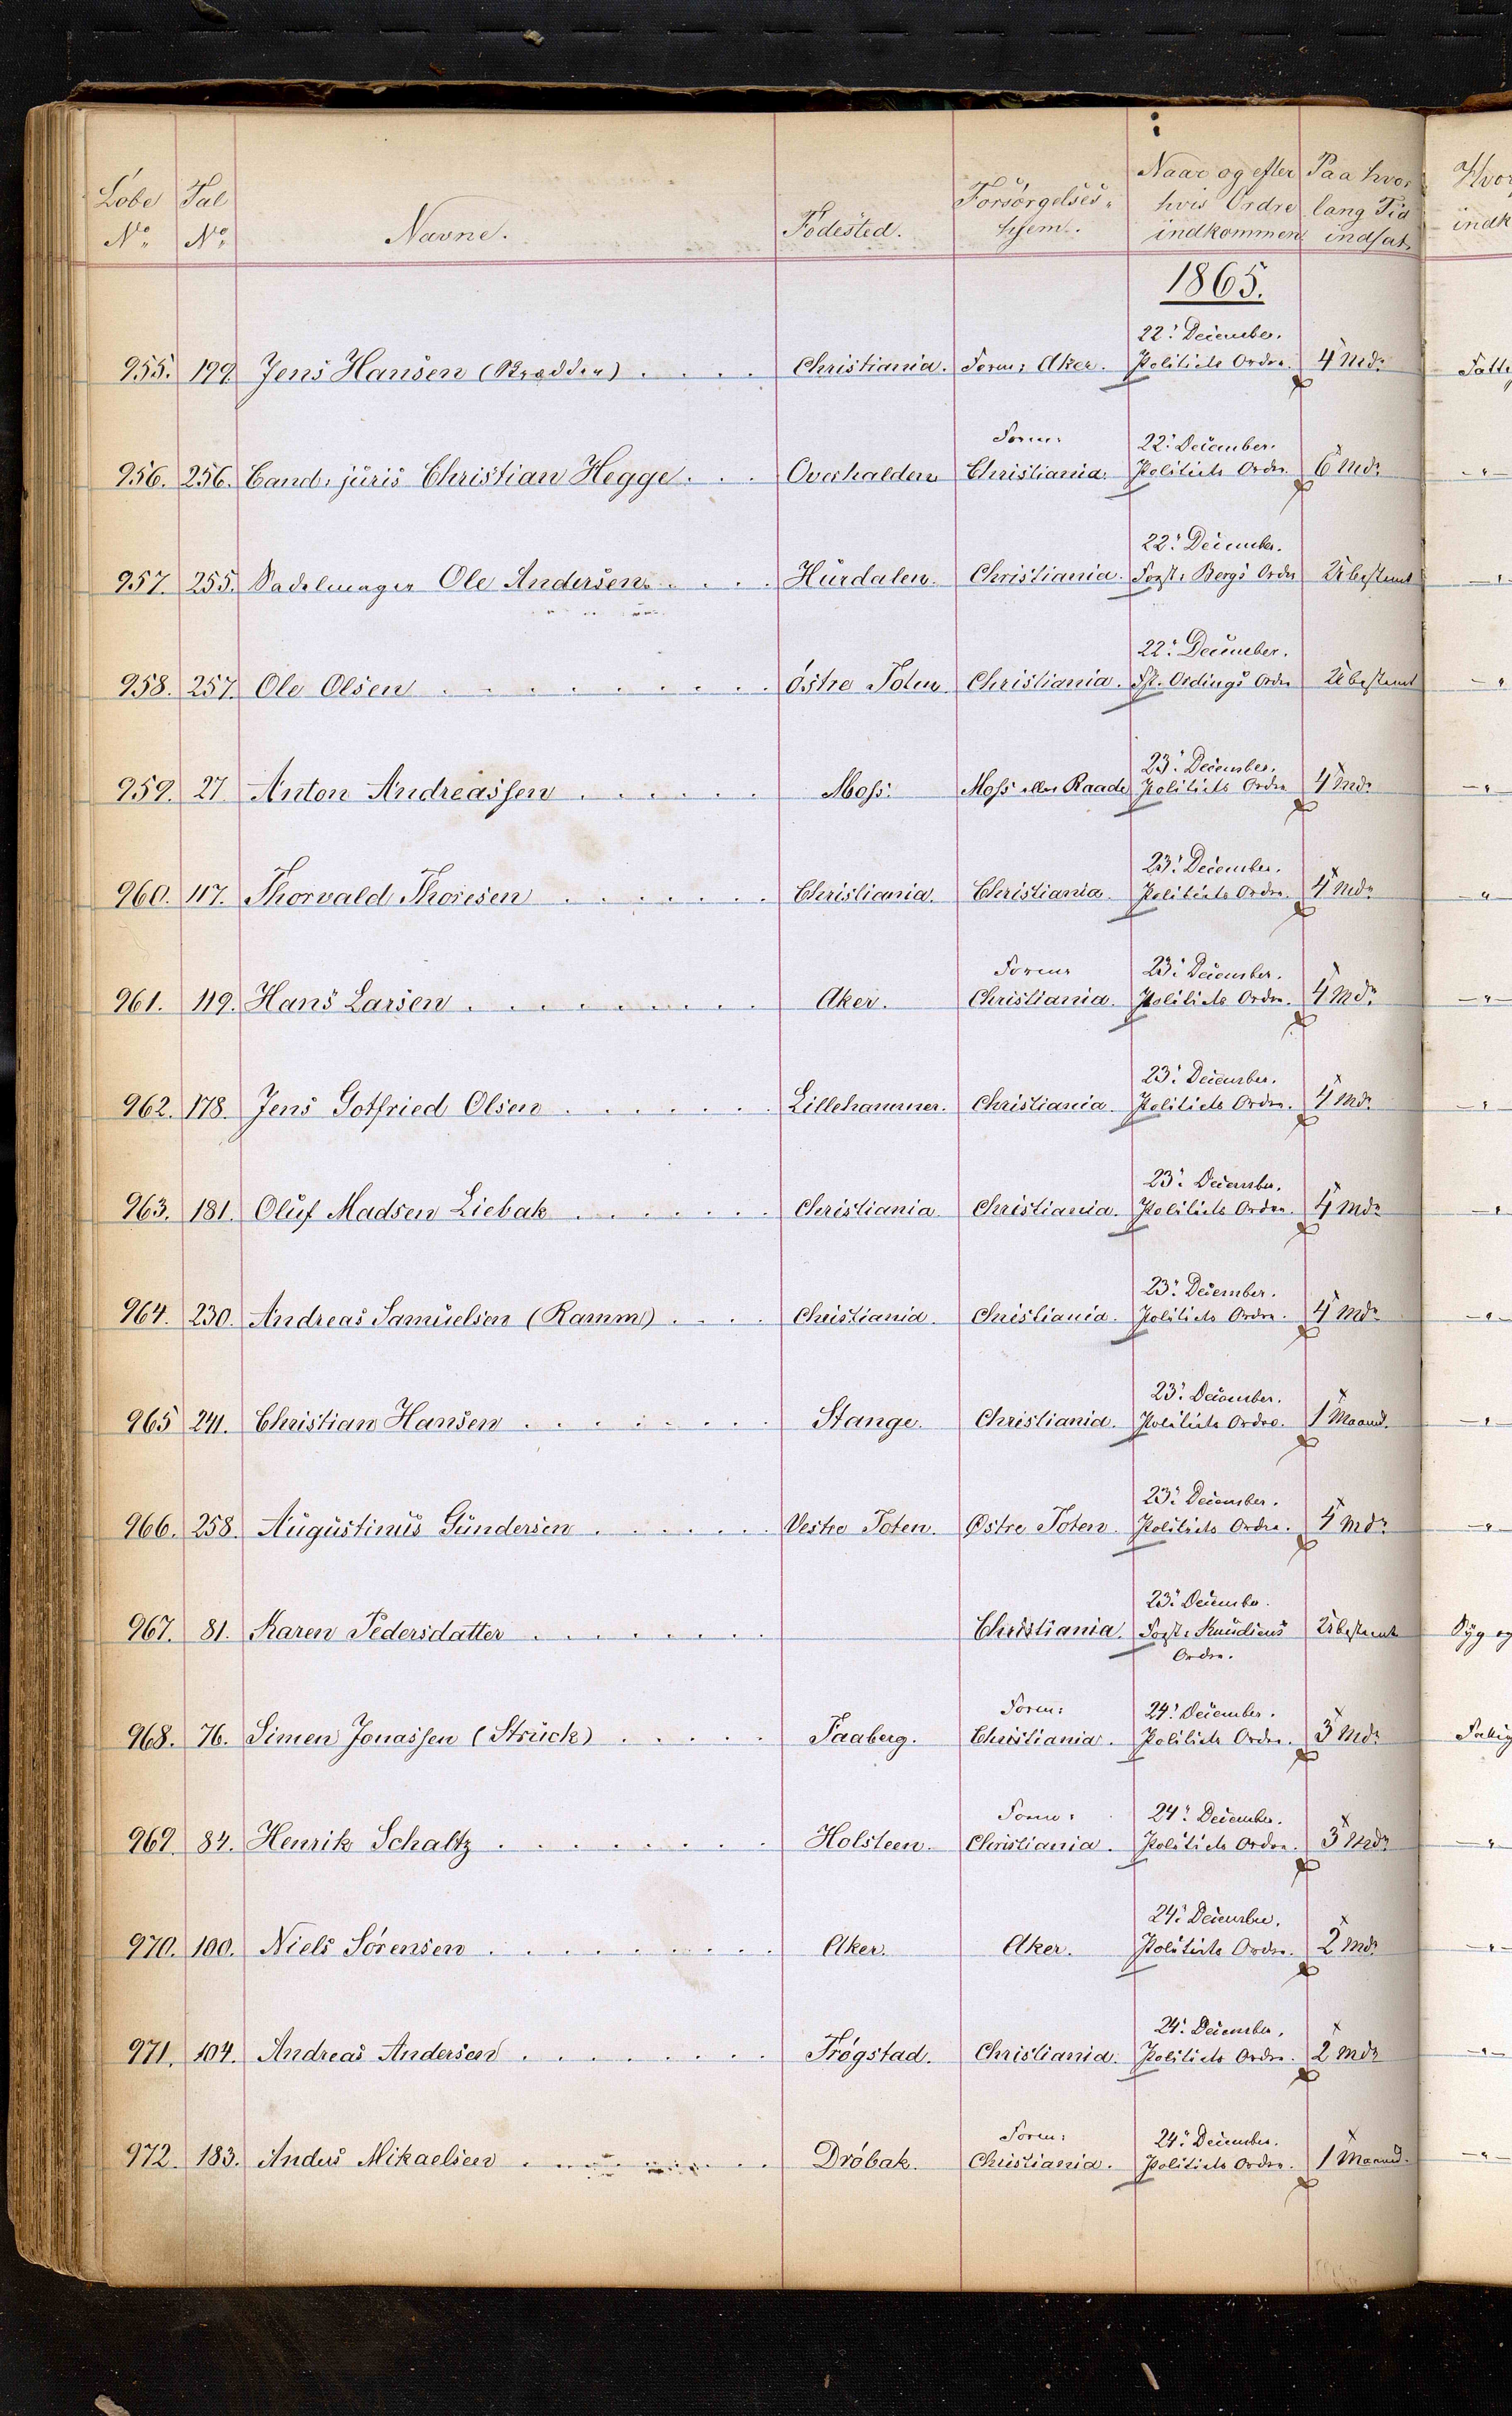 Løbe No. | Tal No. | Navne. | Fødested. | Forsørgelses-hjem. | Naar og efter hvis Ordre indkommen | Paa hvor lang Tid indsat.
1865.
22. December.
955. 199. Jens Hansen (Skrædder) Christiania. Form: Aker. Politiets Ordre. 4 Mdr.
Form: 22. December.
956. 256. Cand. juris Christian Hegge Overhalden Christiania. Politiets Ordre. 6 Mdr.
22. December.
957. 255. Sadelmager Ole Andersen Hurdalen. Christiania. Forst: Bergs Ordre Ubestemt
22. December.
958. 257. Ole Olsen Østre Toten. Christiania. Fst. Ordre Ubestemt
23. December.
959. 27. Anton Andreassen Moss. Moss eller Raade Politiets Ordre 4 Mdr.
23. December.
960. 117. Thorvald Thoresen Christiania. Christiania. Politiets Ordre. 4 Mdr.
Form: 23. December.
961. 119. Hans Larsen Aker. Christiania. Politiets Ordre. 4 Mdr.
23. December.
962. 178. Jens Gotfried Olsen Lillehammer. Christiania. Politiets Ordre. 4 Mdr.
23. December.
963. 181. Oluf Madsen Liebak Christiania Christiania. Politiets Ordre. 4 Mdr.
23. December.
964. 230. Andreas Samuelsen (Ramm) Christiania. Christiania. Politiets Ordre. 4 Mdr.
23. December.
965 241. Christian Hansen Stange. Christiania. Politiets Ordre. 1 Maaned.
23. December.
966. 258. Augustinus Gundersen Vestre Toten. Østre Toten. Politiets Ordre. 4 Mdr.
23. December.
967. 81. Karen Pedersdatter Christiania. Forst. Knudsens Ubestemt
Ordre.
Form: 24. December.
968. 76. Simen Jonassen (Struck) Faaberg. Christiania. Politiets Ordre. 3 Mdr.
Form: 24. December.
969. 84. Henrik Schaltz Holsteen. Christiania. Politiets Ordre. 3 Mdr.
24. December.
970. 100. Niels Sørensen Aker. Aker. Politiets Ordre. 2 Mdr.
24. December.
971. 104. Andreas Andersen Trøgstad. Christiania. Politiets Ordre. 2 Mdr.
Form: 24. December.
972. 183. Anders Mikaelsen Drøbak. Christiania. Politiets Ordre. 1 Maaned.